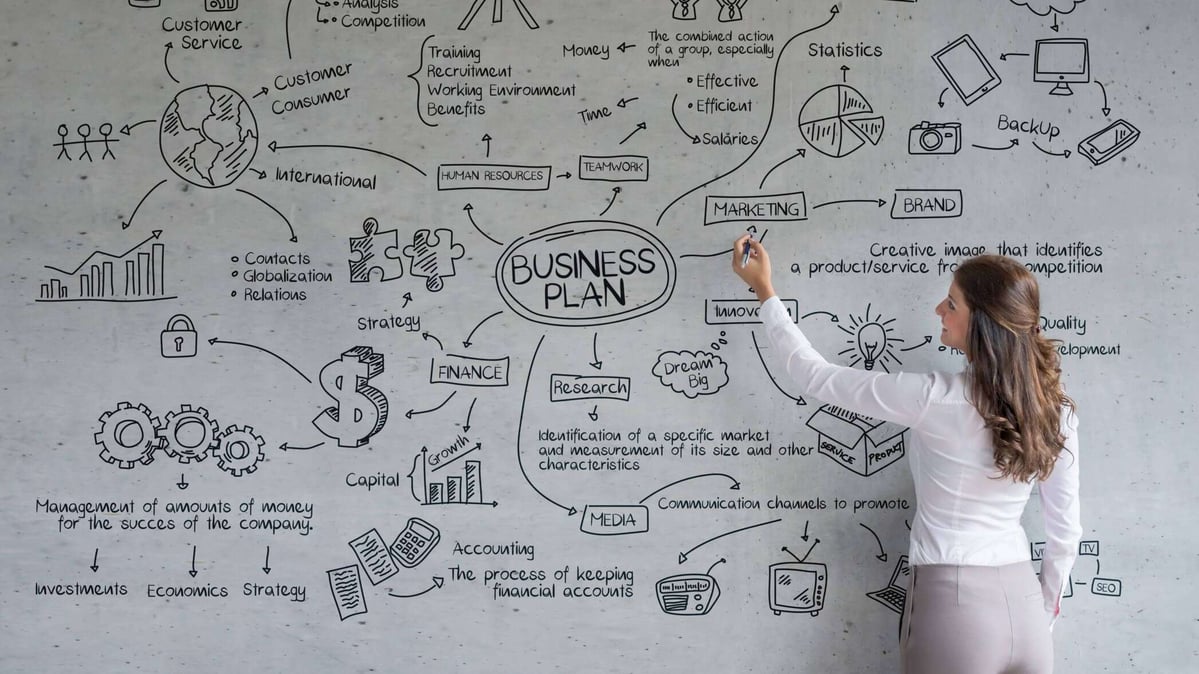 Analysis
Competition
Customer
Service
Customer
Consumer
International
Contacts
Globalization
Relations
Training
Recruitment
Working Environment
Benefits
HUMAN RESOURCES
TEAMWORK
Money
Time
The combined action
of a group, especially
when
Effective
Efficient
Salaries
Statistics
BackUp
MARKETING
BRAND
Creative image that identifies
a product/service competition
BUSINESS
PLAN
Innovation
Quality
Dream
Big
SERVICE
PRODUCT
Strategy
FINANCE
Research
Identification of a specific market
and measurement of its size and other
characteristics
Growth
Capital
Management of amounts of money
for the succes of the company.
Investments
Economics
Strategy
Accounting
The process of keeping
financial accounts
MEDIA
Communication channels to promote
TV
SEO